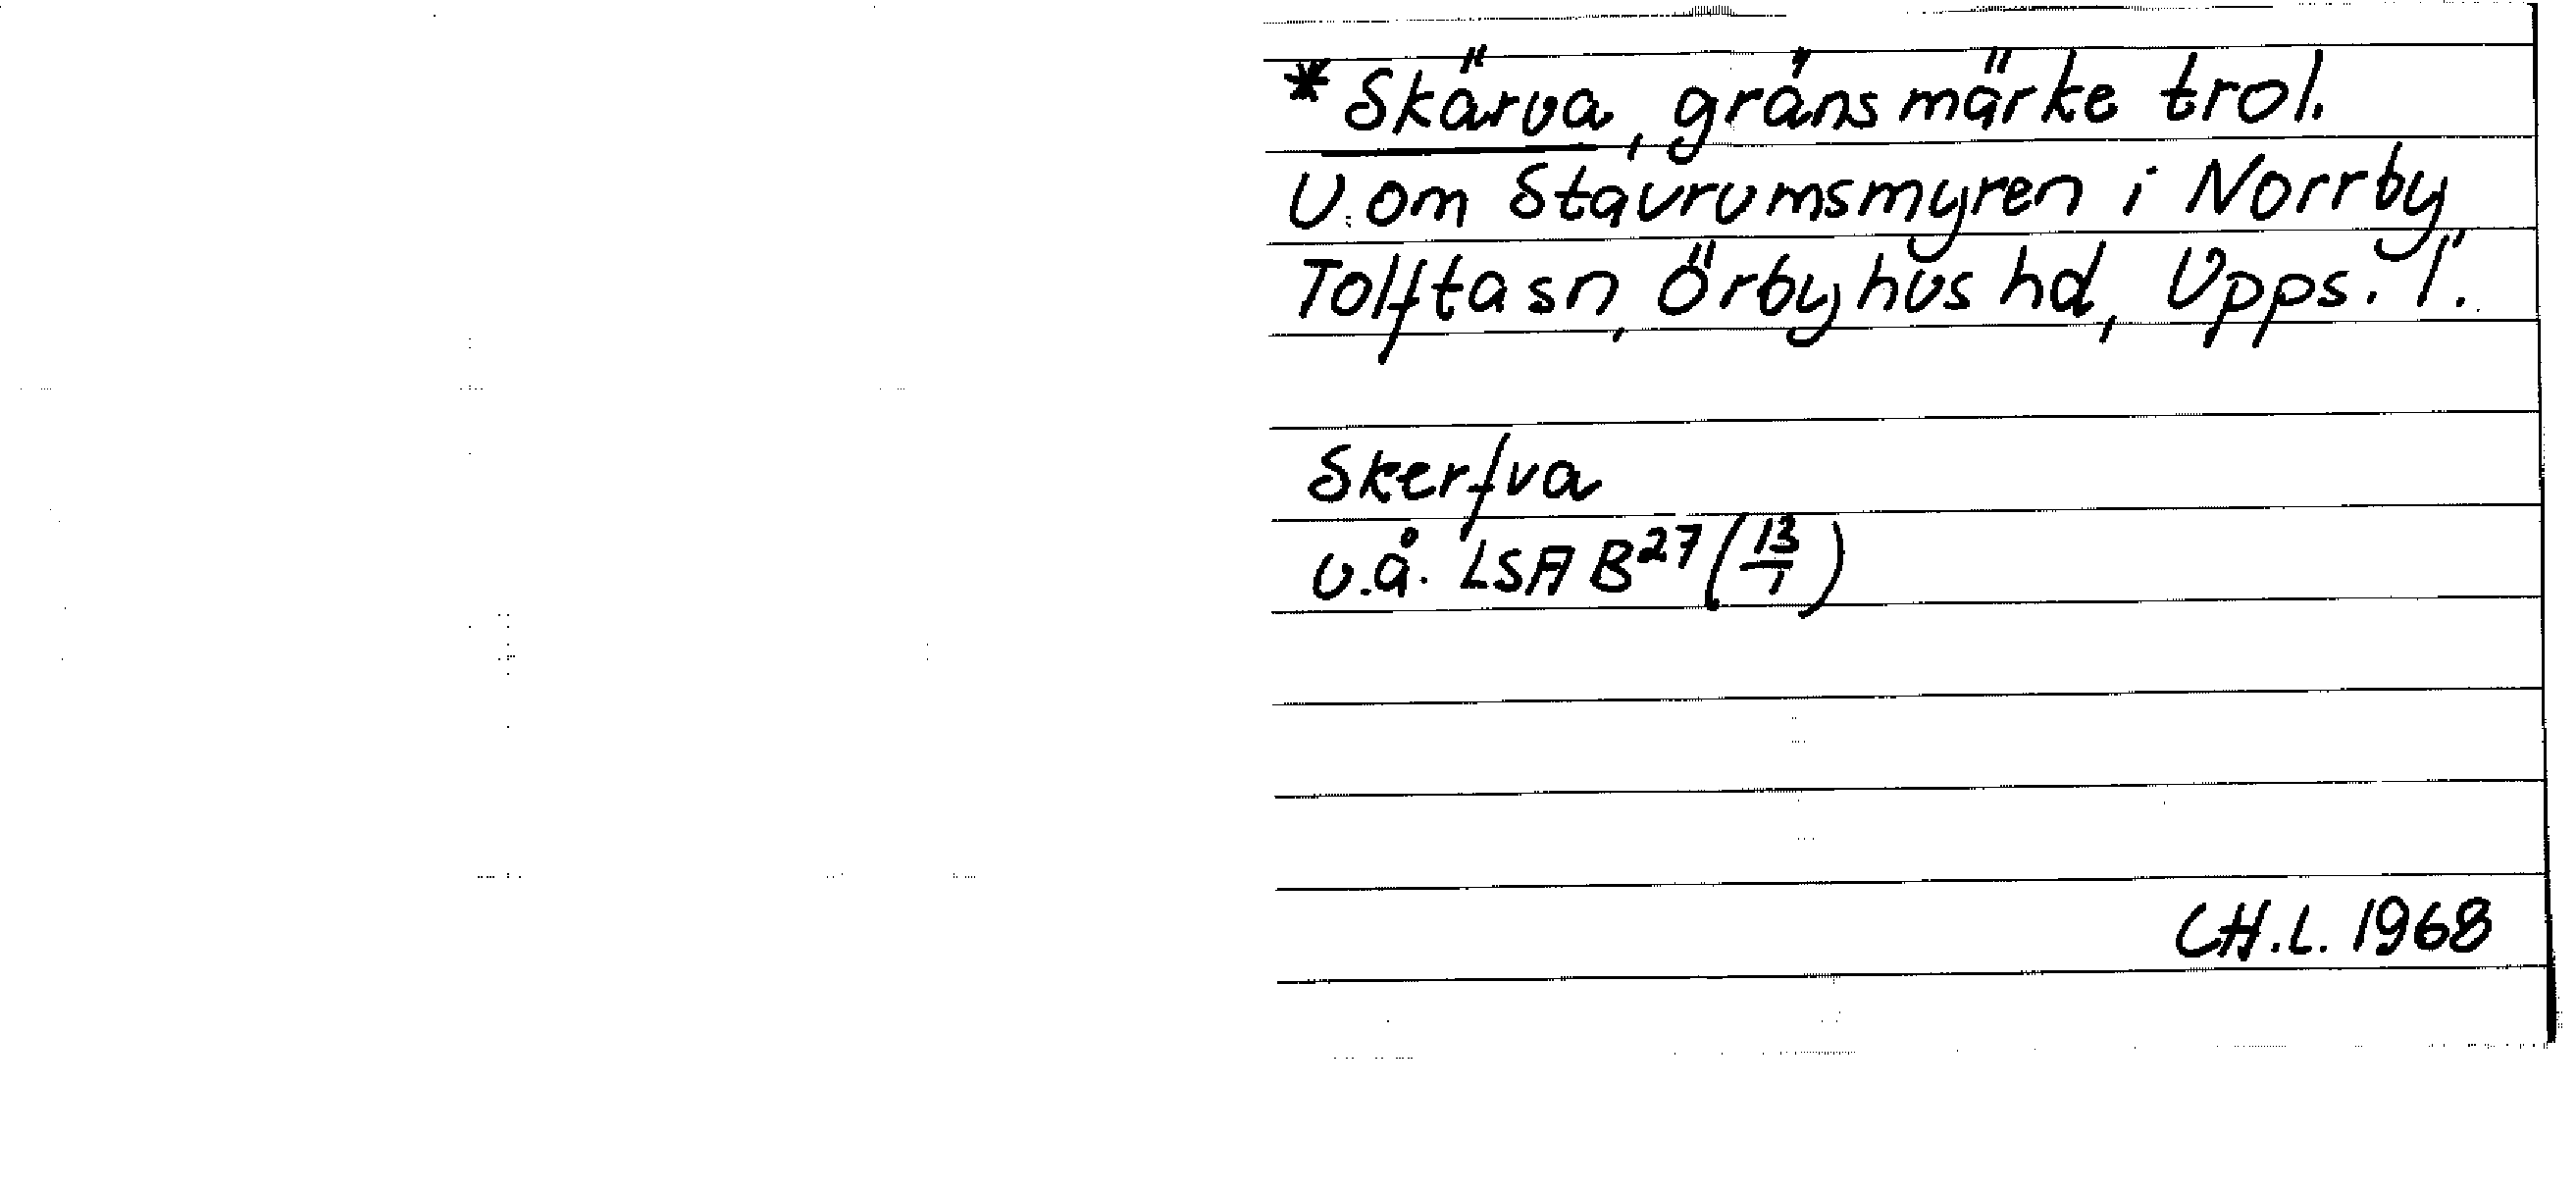 *Skärva, gränsmärke trol.
V. om Stavrumsmyren i Norrby
Tolfta sn, Örbyhus hd, Upps. l.
Skerfva
u.å. LSA B²⁷ (13/1)
CH.L. 1968